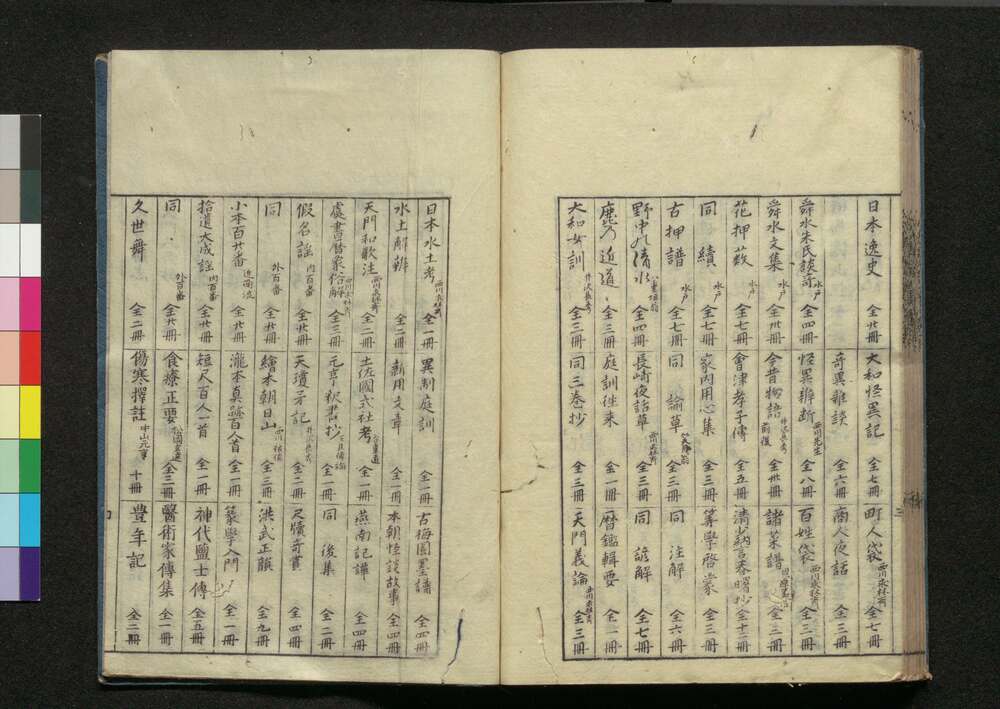 日本逸史 全廿冊 大和怪異記 全七冊 町人袋 西川求林斎 全七冊
奇異雜談 全六冊 商人夜話 全三冊
舜水朱氏談綺 水戸 全四冊 怪異辨断 西川先生 全八冊 百姓袋 西川求林斎 全三冊
舜水文集 水戸 全卅冊 今昔物語 井沢長秀 前後 全卅冊 諸菜譜 全三冊
花押薮 水戸 全七冊 會津孝子傳 全五冊 清少納言春曙抄 全十二冊
同續 水戸 全七冊 家内用心集 全三冊 筭學啓蒙 全三冊
古押譜 水戸 全七冊 同諭草 全三冊 同注解 全六冊
野中乃清水 全四冊 長崎夜話草 西川求林斎 全三冊 同諺解 全七冊
鹿乃近道 全三冊 庭訓往来 全一冊 暦鑑輯要 全一冊
大和女訓 井沢長秀 全三冊 同三巻抄 全三冊 天門義論 西川求林斎 全三冊
日本水土考 西川求林斎 全一冊 異制庭訓 全一冊 古梅園墨譜 全四冊
水土解辨 全二冊 新用文章 全一冊 本朝怪談故事 全四冊
天門和歌注 西川求林斎 全二冊 土佐國式社考 谷重遠 全一冊 燕南記譚 全四冊
虞書暦象俗解 西川求林斎 全三冊 元亨釈書抄 全一冊 同後集 全二冊
假名謡 内百番 全廿冊 天瓊矛記 井沢長秀 全二冊 尺牘奇賞 全四冊
同 外百番 全廿冊 繪本朝日山 西川祐信 全三冊 洪武正韻 全九冊
小本百廿番 近衛流 全廿冊 瀧本真蹟百人首 全一冊 篆學入門 全一冊
拾遺大成謡 内百番 全廿冊 短尺百人一首 全一冊 神代鹽土傳 全五冊
同 外百番 全廿冊 食療正要 松岡玄達 全三冊 醫術家傳集 全一冊
久世舞 全二冊 傷寒擇註 中山元亨 十冊 豊年記 全二冊